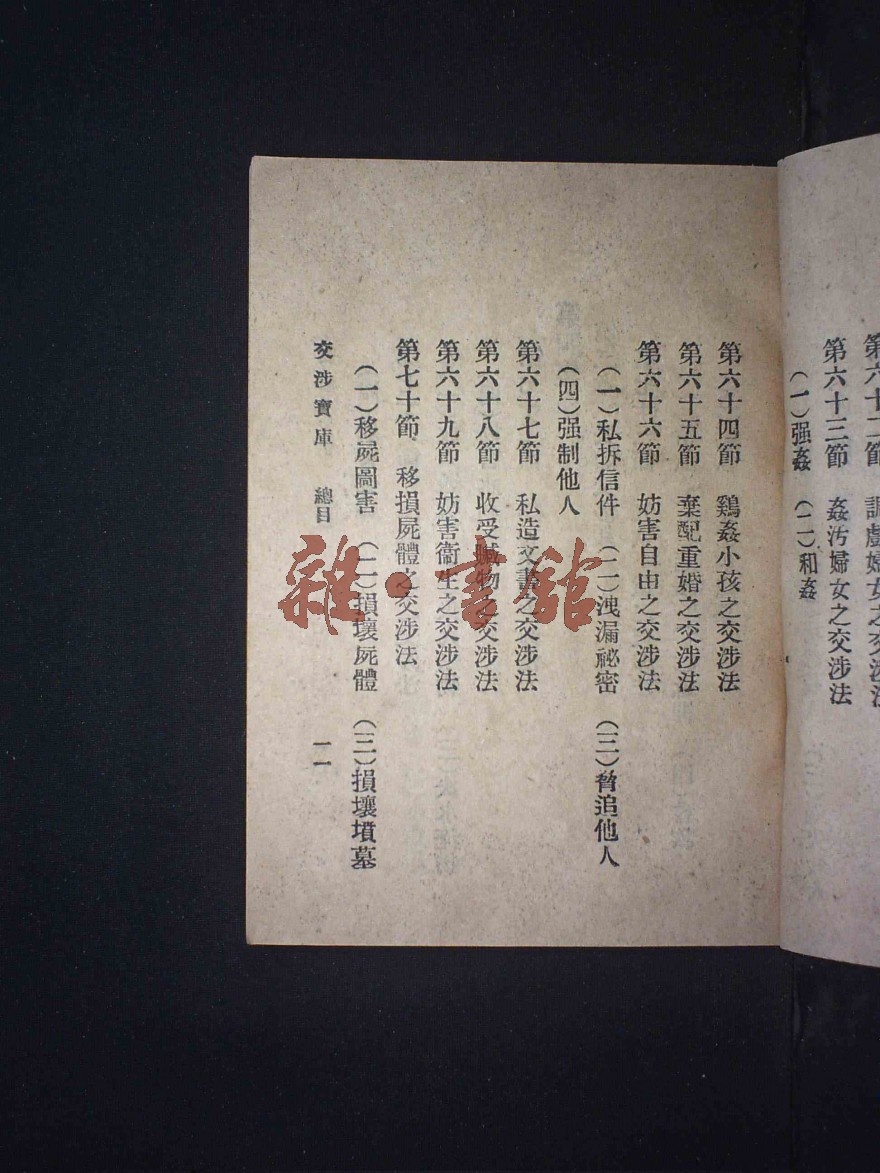 第六十二節 調戲婦女之交涉法
第六十三節 姦汚婦女之交涉法
(一)强姦 (二)和姦
第六十四節 鷄姦小孩之交涉法
第六十五節 棄配重婚之交涉法
第六十六節 妨害自由之交涉法
(一)私拆信件 (二)洩漏祕密 (三)脅追他人
(四)强制他人
第六十七節 私造文書之交涉法
第六十八節 收受贓物之交涉法
第六十九節 妨害衞生之交涉法
第七十節 移損屍體之交涉法
(一)移屍圖害 (二)損壞屍體 (三)損壞墳墓
交涉寶庫 總目 一一
雜·書舘